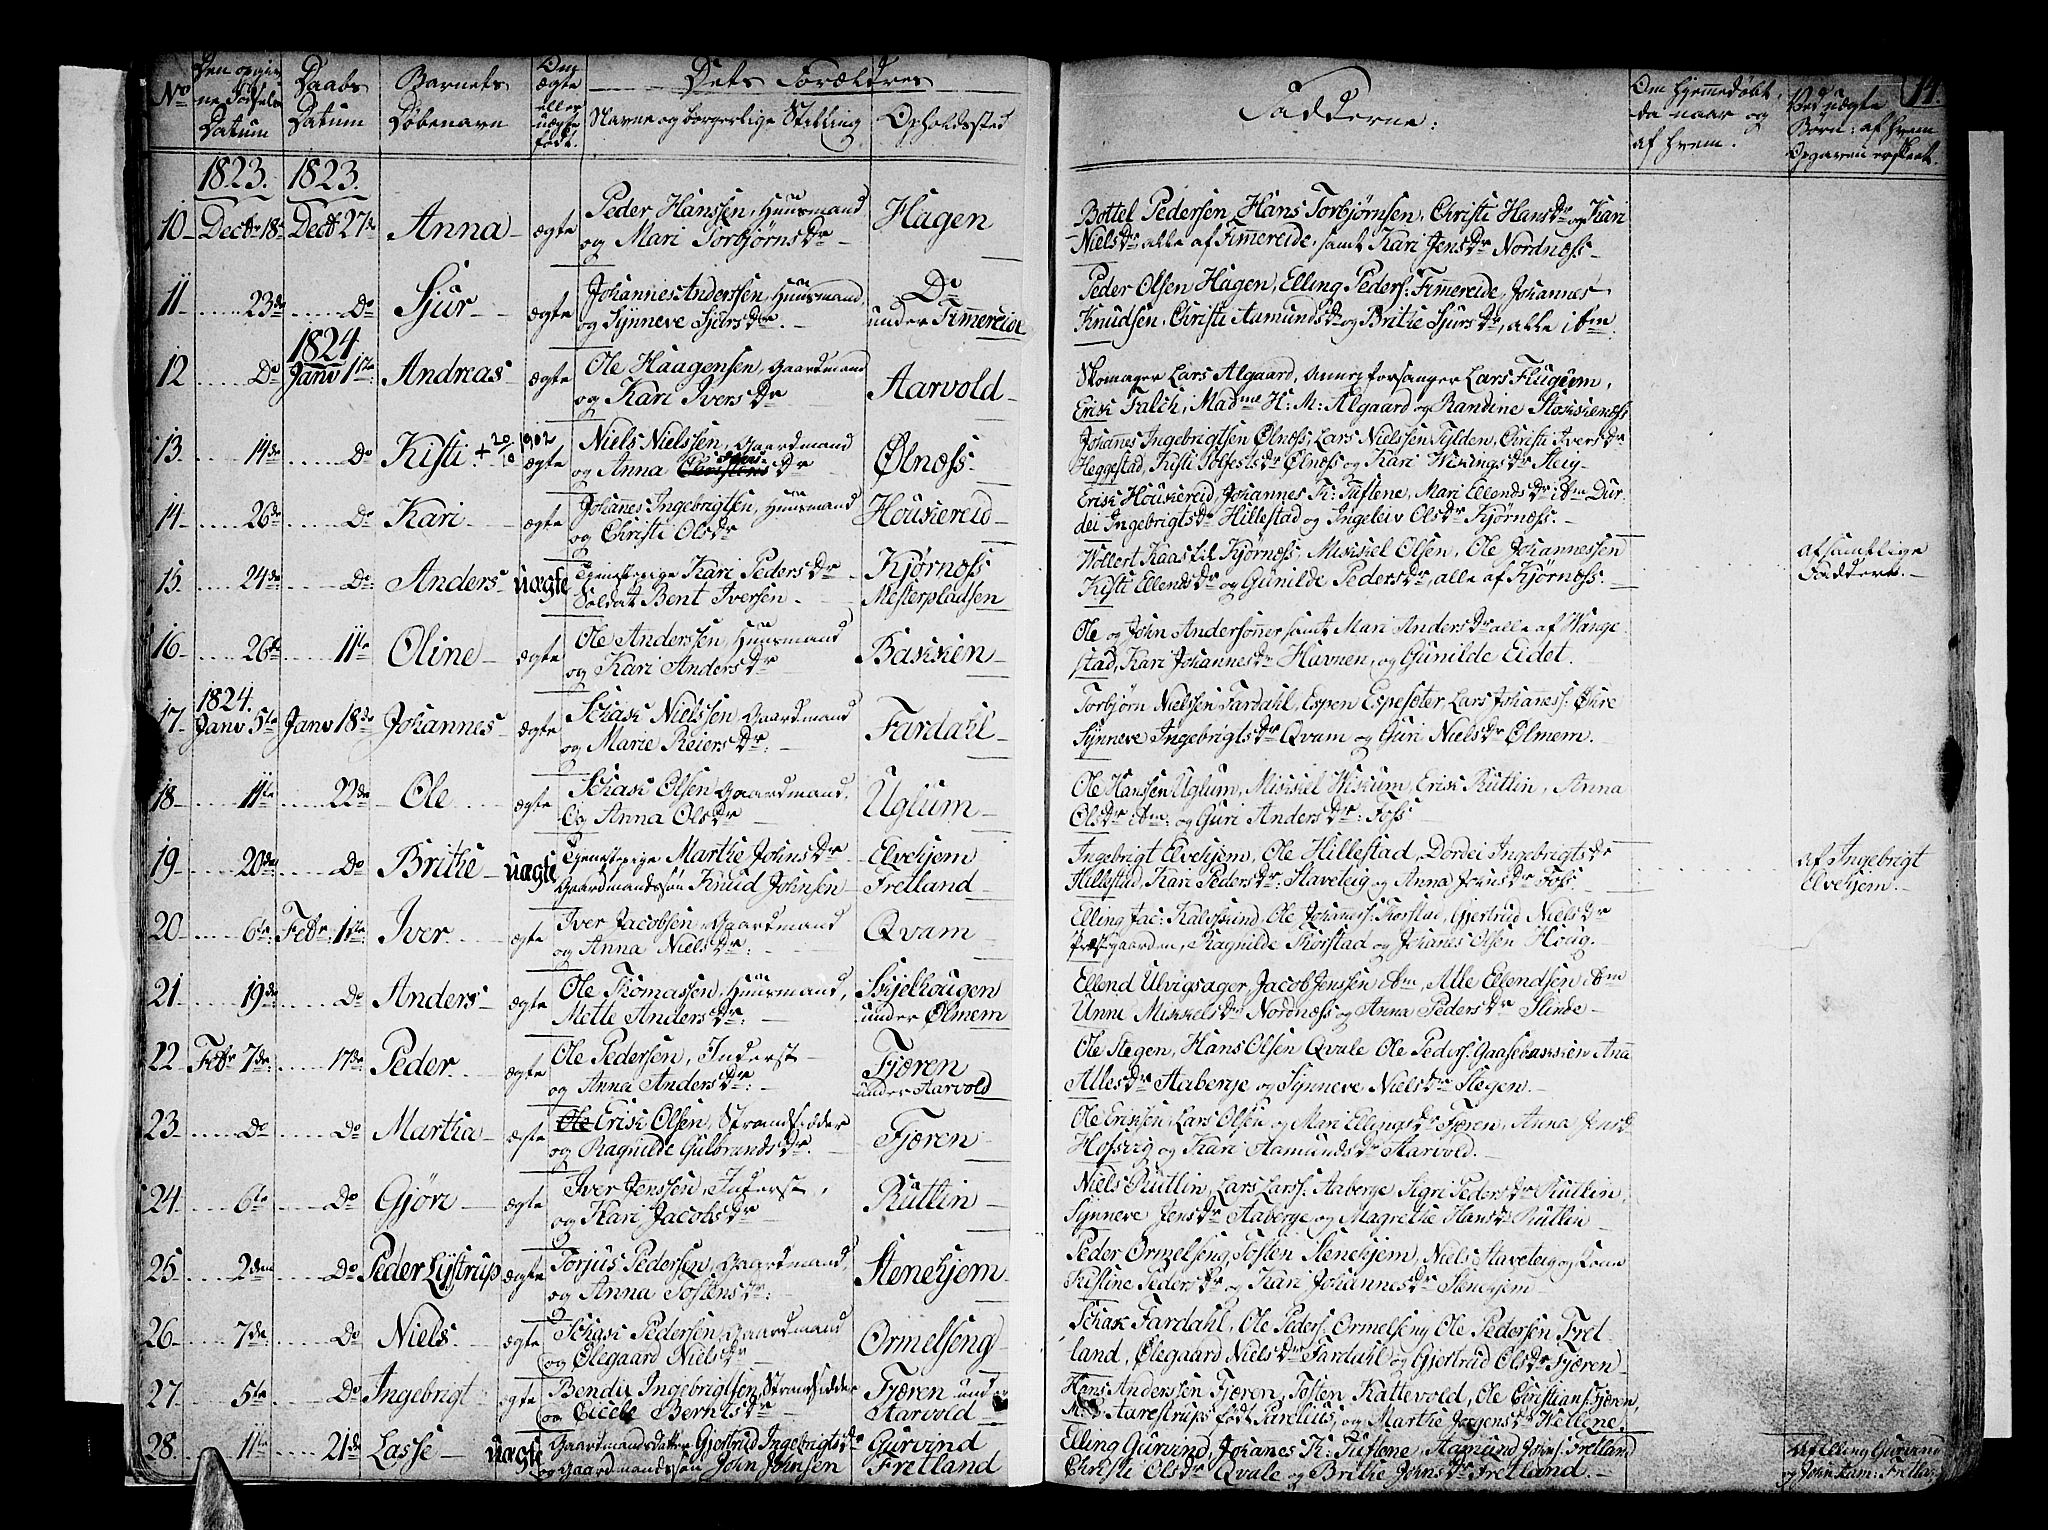 14.
No
Den opgivne Fødsels Datum
Daabs Datum
Barnets Døbenavn
Om ægte eller uægte født.
Dets Forældres
Navne og borgerlige Stilling
Opholdssted
Fadderne:
Om hjemmedøbt, da naar og af hvem.
Ved uægte Børn: af hvem Opgaven er skeet.
1823. 1823.
10 Decbr 18de Decbr 27de Anna ægte Peder Hanssen, Huusmand og Mari Torbjørnsdr Hagen
Bottel Pedersen, Hans Torbjørnsen, Christi Hansdr og Kari
Nielsdr, alle af Fimereide, samt Kari Jensdr Nordnæss
11 23de Do Sjur ægte Johannes Anderssen, Huusmand, og Synneve Sjursdr Do under Fimereide
Peder Olsen Hagen, Elling Peders: Fimereide, Johannes
Knudsen, Christi Aamundsdr og Brithe Sjursdr, alle ibm
1824
12 Do Janv 1ste Andreas ægte Ole Haagensen, Gaardmand og Kari Iversdr Aarvold
Skomager Lars Algaard, forsanger Lars Flugum,
Erik Falch, Madme H: M: Algaard og Randine Stokkenæss
13. 14de Do Kisti + 20/10 1902 ægte Niels Nielssen, Gaardmand og Anna dr Ølnæss
Johannes Ingebrigtsen Ølnæss, Lars Nielssen Tylden, Christi Iversdr
Heggestad, Kisti Solfestsdr Ølnæss og Kari Wikingsdr Steig
14 26de Do Kari ægte Johannes Ingebrigtsen, Huusmand og Christi Olsdr Houkereid
Erik Houkereid, Johannes K: Tuftene, Mari Ellendsdr ibm Dur-
dei Ingebrigtsdr Hillestad og Ingeleiv Olsdr Kjørnæss.
15 24de Do Anders uægte Tjenestepige Kari Pedersdr Soldat Bent Iversen Kjørnæss Mesterpladsen
Wollert Kaas til Kjørnæss, Mikkel Olsen, Ole Johannessen
Kisti Ellendsdr og Gunilde Pedersdr, alle af Kjørnæss.
af samtlige Faddere.
16 26de 11te Oline ægte Ole Anderssen, Huusmand og Kari Andersdr Bakken
Ole og John Anderssønner samt Mari Andersdr alle af Wange-
stad, Kari Johannesdr Havnen, og Gunilde Eidet.
1824.
17. Janv 5te Janv 18de Johannes ægte Schak Nielssen, Gaardmand og Marie Reiersdr: Fardahl
Torbjørn Nielssen Fardahl, Espen Espesæter Lars Johaness: Øhre
Synneve Ingebrigtsdr Qvam og Guri Nielsdr Ølmem.
18 11te 22de Ole ægte Schak Olsen Gaardmand, Og Anna Olsdr Uglum
Ole Hanssen Uglum, Mikkel Wikum, Erik Rutlin, Anna
Olsdr ibm: og Guri Andersdr: Foss
19 20de Do Brithe uægte Tjenestepige Marthe Johnsdr Gaardmandssøn Knud Johnsen Elvehjem Fretland
Ingebrigt Elvehjem, Ole Hillestad, Dordei Ingebrigtsdr
Hillestad, Kari Pedersdr: Staveteig og Anna Johnsdr Foss
af Ingebrigt Elvehjem.
20 6te Febr: 1ste Iver ægte Iver Jacobsen, Gaardmand og Anna Nielsdr: Qvam
Elling Jac: Kalvsund, Ole Johanness: Skorstad, Gjertrud Nielsdr
Præstgaarden, Ragnilde Skorstad og Johanes Olsen Houg.
21 19de Do Anders ægte Ole Thomassen, Huusmand, Mette Andersdr: Skjelhougen under Ølmem
Ellend Ulvigsager, Jacob Jenssen ibm, Alle Ellendsen ibm
Unni Mikkelsdr Nordnæss og Anna Pedersdr Slinde
22 Febr 7de 17de Peder ægte Ole Pedersen, Inderst og Anna Andersdr: Fjæren under Aarvold
Ole Stegen, Hans Olsen Qvale Ole Peders: Gaasebakken Anna
Allesdr Aaberge og Synneve Nielsdr Stegen.
23 Do Do Martha ægte Ole Erik Olsen, Strandsidder og Ragnilde Gulbrandsdr. Fjæren
Ole Eriksen, Lars Olsen og Mari Ellingsdr Fjæren, Anna Jensdr
Hofsvig og Kari Aamundsdr Aarvold.
24 6te Do Gjøri ægte Iver Jenssen, Inderst, og Kari Jacobsdr Rutlin
Niels Rutlin, Lars Larss: Aaberge Sigri Pedersdr Rutlin,
Synneve Jensdr Aaberge og Magrethe Hansdr Rutlin
25 2den Do Peder Lystrup ægte Torjus Pedersen, Gaardmand, og Anna Tostensdr: Stenehjem
Peder Ormelseng, Tosten Stenehjem, Niels Staveteig og Kone
Kistine Pedersdr og Kari Johannesdr Stenehjem
26 7de Do Niels ægte Schak Pedersen, Gaardmand og Ølegaard Nielsdr Ormelseng
Schak Fardahl, Ole Peders: Ormelseng Ole Pedersen Fret-
land, Ølegaard Nielsdr Fardahl og Gjertrud Olsdr Fjæren
27. 5te Do Ingebrigt ægte Bendix Ingebrigtsen, Strandsidder og Cicele Berntsdr Fjæren under Aarvold
Hans Anderssen Fjæren, Tosten Kattevold, Ole Christians: Fjæren,
Aarestrups født Parelius, og Marthe Jørgensdr Wellene.
28. 11te 21de Lasse uægte Gaardmandsdatter Gjertrud Ingebrigtsdr og Gaardmandssøn John Johnsen Gurvind Fretland
Elling Gurvind, Johanes K: Tuftene, Aamund Johns: Fretland
Christi Olsdr Qvale og Brithe Johnsdr Fretland.
af Elling Gurvind og John Aam: Fretland